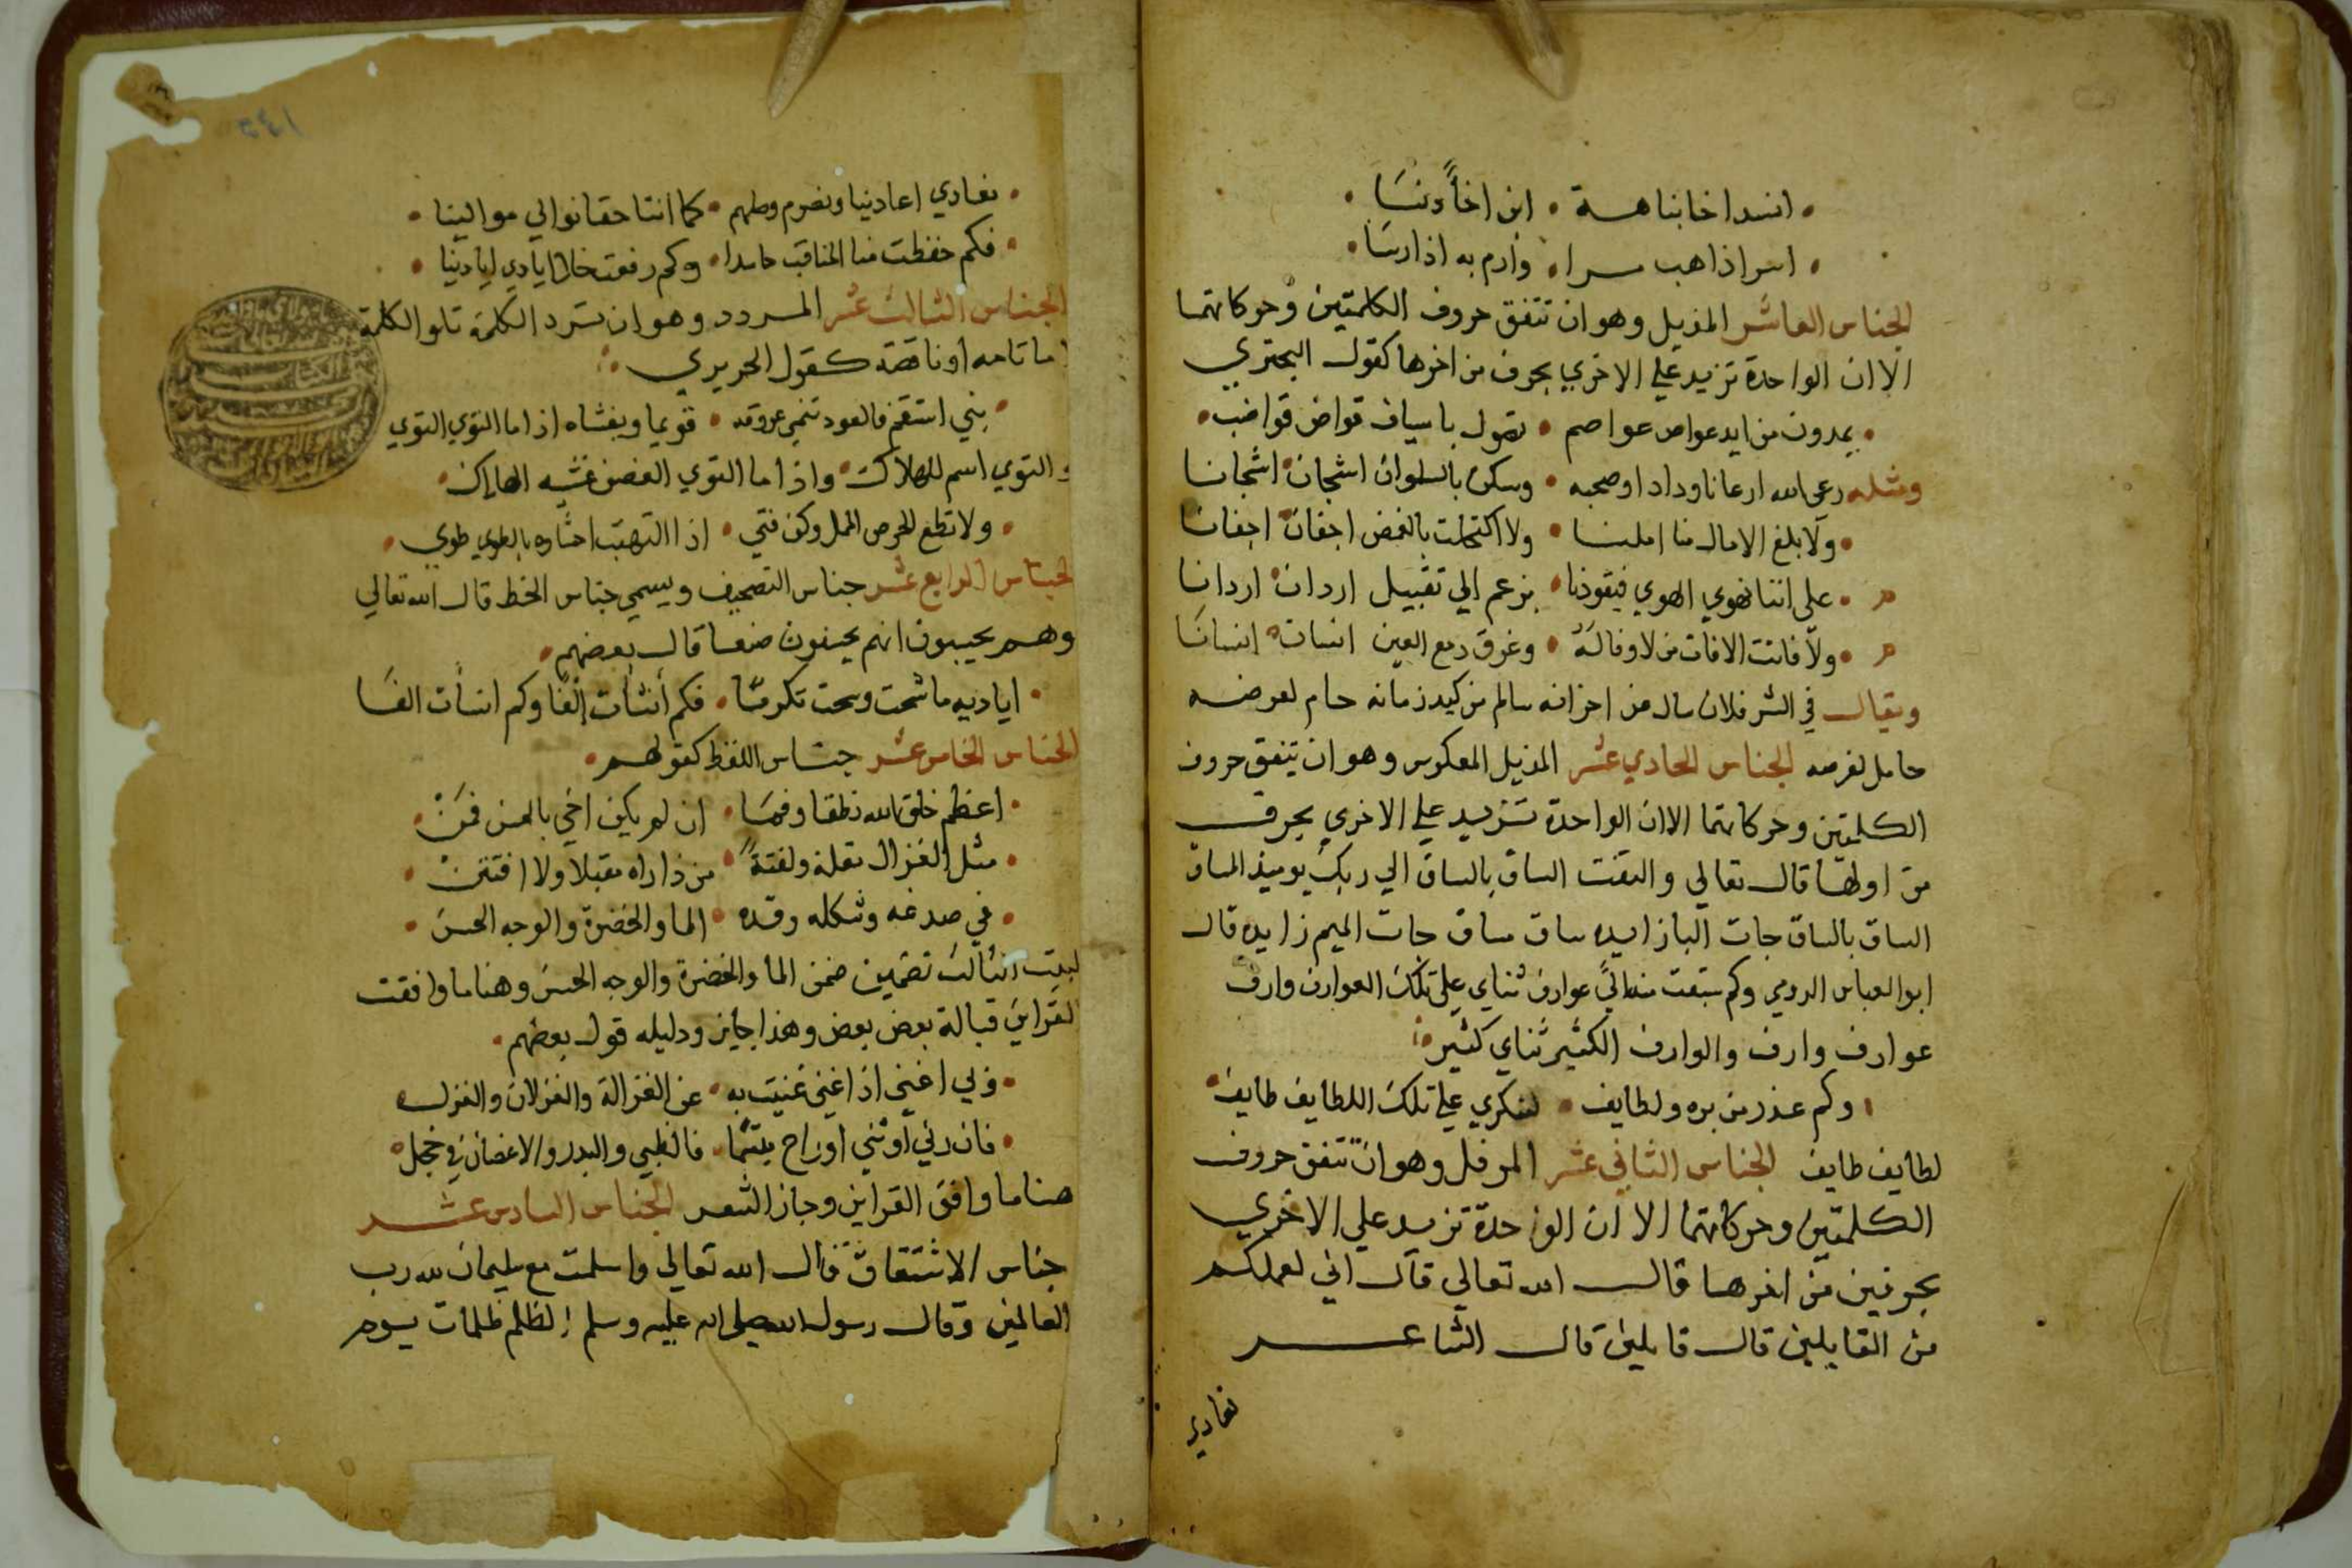 اسند اخا نباهة • ابن اخاءً دنسَا
اسر اذا هب مرا • وارم به اذا رسَا
الجناس العاشر المذيل وهو ان تتفق حروف الكلمتين وحركاتهما
الا ان الواحدة تزيد علي الاخري بحرف من اخرها كقول البحتري
• يمدون من ايد عواص عواصم • تصول باسياف قواض قواضب •
ومثله رعى الله ارعانا ودادا وصحبه • وسكن بالسلوان اشجان اشجانا
• ولا بلغ الامال منا املنا • ولا اكتحلت بالغمض اجفان اجفانا
م • على اننا نهوي الهوي فيقودنا • بزعم الي تقبيل اردان اردانا
م • ولا فاتت الافات من لا وفا له • وغرق دمع العين انسان انسانَا
ويقال في النثر فلان سال من احزانه سالم من كيد زمانه حام لعرضه
حامل لغرضه الجناس الحادي عشر المذيل المعكوس وهو ان يتفق حروف
الكلمتين وحركاتهما الا ان الواحدة تزيد علي الاخري بحرف
من اولها قال تعالي والتفت الساق بالساق الي ربك يوميذ المساق
الساق بالساق جات البا زايده ساق مساق جات الميم زايده قال
ابو العباس الرومي وكم سبقت منه اليَّ عوارف ثناي على تلك العوارف وارف
عوارف وارف والوارف الكثير ثناي كثير
• وكم غدر من بره ولطايف • لشكري علي تلك اللطايف طايف •
لطايف طايف الجناس الثاني عشر المرفل وهو ان تتفق حروف
الكلمتين وحركاتهما الا ان الواحدة تزيد علي الاخري
بحرفين من اخرها قال الله تعالى قال اني لعملكم
من القايلين قال قايلين قال الشاعر
نعادي
• نعادي اعادينا ونصرم وصلهم • كما اننا حقا نوالي موالينا •
• فكم خفظت منا المناقب حاسدا • وكم رفعت خلا ايادي ايادينا •
الجناس الثالث عشر المردد وهو ان ترد الكلمة تلو الكلمة
اما تامه او ناقصة كقول الحريري
• بني استقم فالعود تنمي عروقه • قويما ويغشاه اذا ما التوي التوي
والتوي اسم للهلاك واذا ما التوي الغصن غشيه الهلاك
• ولا تطع الحرص المذل وكن فتي • اذا التهبت احشاوه بالطوي طوي •
الجناس الرابع عشر جناس التصحيف ويسمي جناس الخط قال الله تعالي
وهم يحسبون انهم يحسنون صنعا قال بعضهم •
• اياديه ما شحت وسحت تكرمًا • فكم أنشأت إلفًا وكم انسأت الفَا
الجناس الخامس عشر جناس اللفظ كقولهم •
• اعظم خلق الله نطقا وفمَا • ان لم يكن احق بالحسن فمَنْ •
• مثل الغزال مقلة ولفتةً • من ذا راه مقبلا ولا افتتنْ •
• في صدغه وشكله وقده • الما والخضرة والوجه الحسن •
البيت الثالث تضمين ضمن الما والخضرة والوجه الحسن وهنا ما وافقت
القراين قبالة بعض بعض وهذا جايز ودليله قول بعضهم •
• ولي اغني اذا غني غنيت به • عن الغزالة والغزلان والغزل
• فان رني او ثني او راح مبتسما • فالظبي والبدر والاغصان في خجل
هنا ما وافق القراين وجاز الشعر الجناس السادس عشر
جناس الاشتقاق قال الله تعالي واسلمت مع سليمان لله رب
العالمين وقال رسول الله صلى الله عليه وسلم الظلم ظلمات يوم